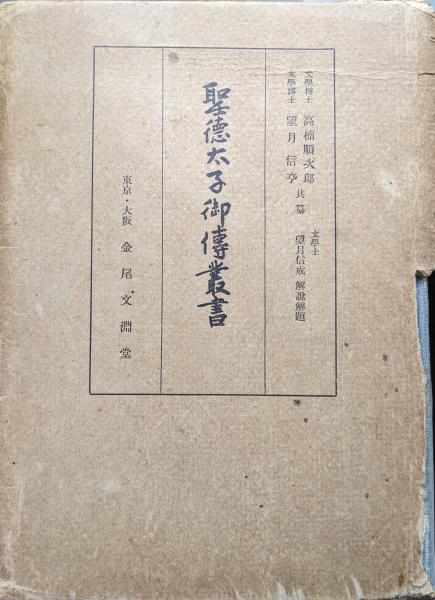 文學博士 高楠順次郎
文學博士 望月信亨 共纂
文學士 望月信成 解說解題
聖德太子御傳叢書
東京・大阪 金尾文淵堂